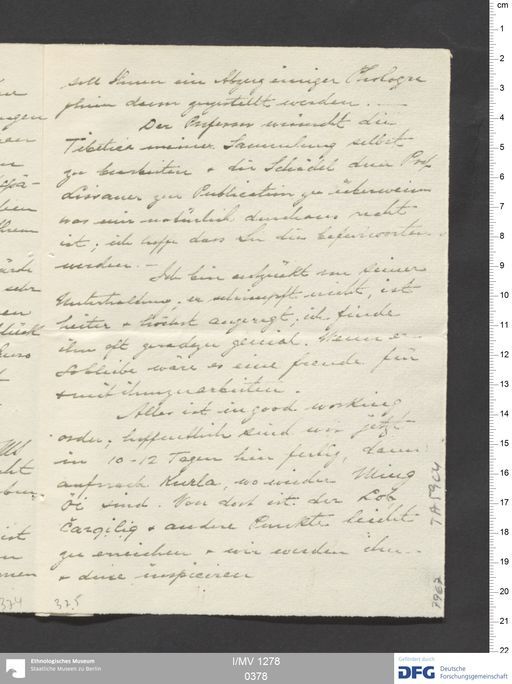 soll Ihnen ein Abzug einiger
dann zugestellt werden. —
Der Professor wünscht die
Tibetica meiner Sammlung selbst
zu bearbeiten + die Schädel dem Prof.
Lissauer zur Publication zu überweisen
was mir natürlich durchaus recht
ist; ich hoffe dass Sie dies befürworten
werden. — Ich bin entzückt von seiner
Unterhaltung; er schimpft nicht, ist
heiter + höchst angeregt; ich finde
ihn oft geradezu genial. Wenn er
so bleibt wäre es eine Freude für
mit ihm zu arbeiten.
Alles ist in good working
order; hoffentlich sind wir jetzt
in 10-12 Tagen hier fertig, dann
auf nach Kurla, wo wieder Ming
Öi sind. Von dort ist der Lob
+ andere Punkte leicht
zu erreichen + wir werden ihn
+ diese inspiciren
374
375
TA 5964
7962
cm
1
2
3
4
5
6
7
8
9
10
11
12
13
14
15
16
17
18
19
20
21
22
Ethnologisches Museum
Staatliche Museen zu Berlin
I/MV 1278
0378
Gefördert durch
DFG
Deutsche
Forschungsgemeinschaft